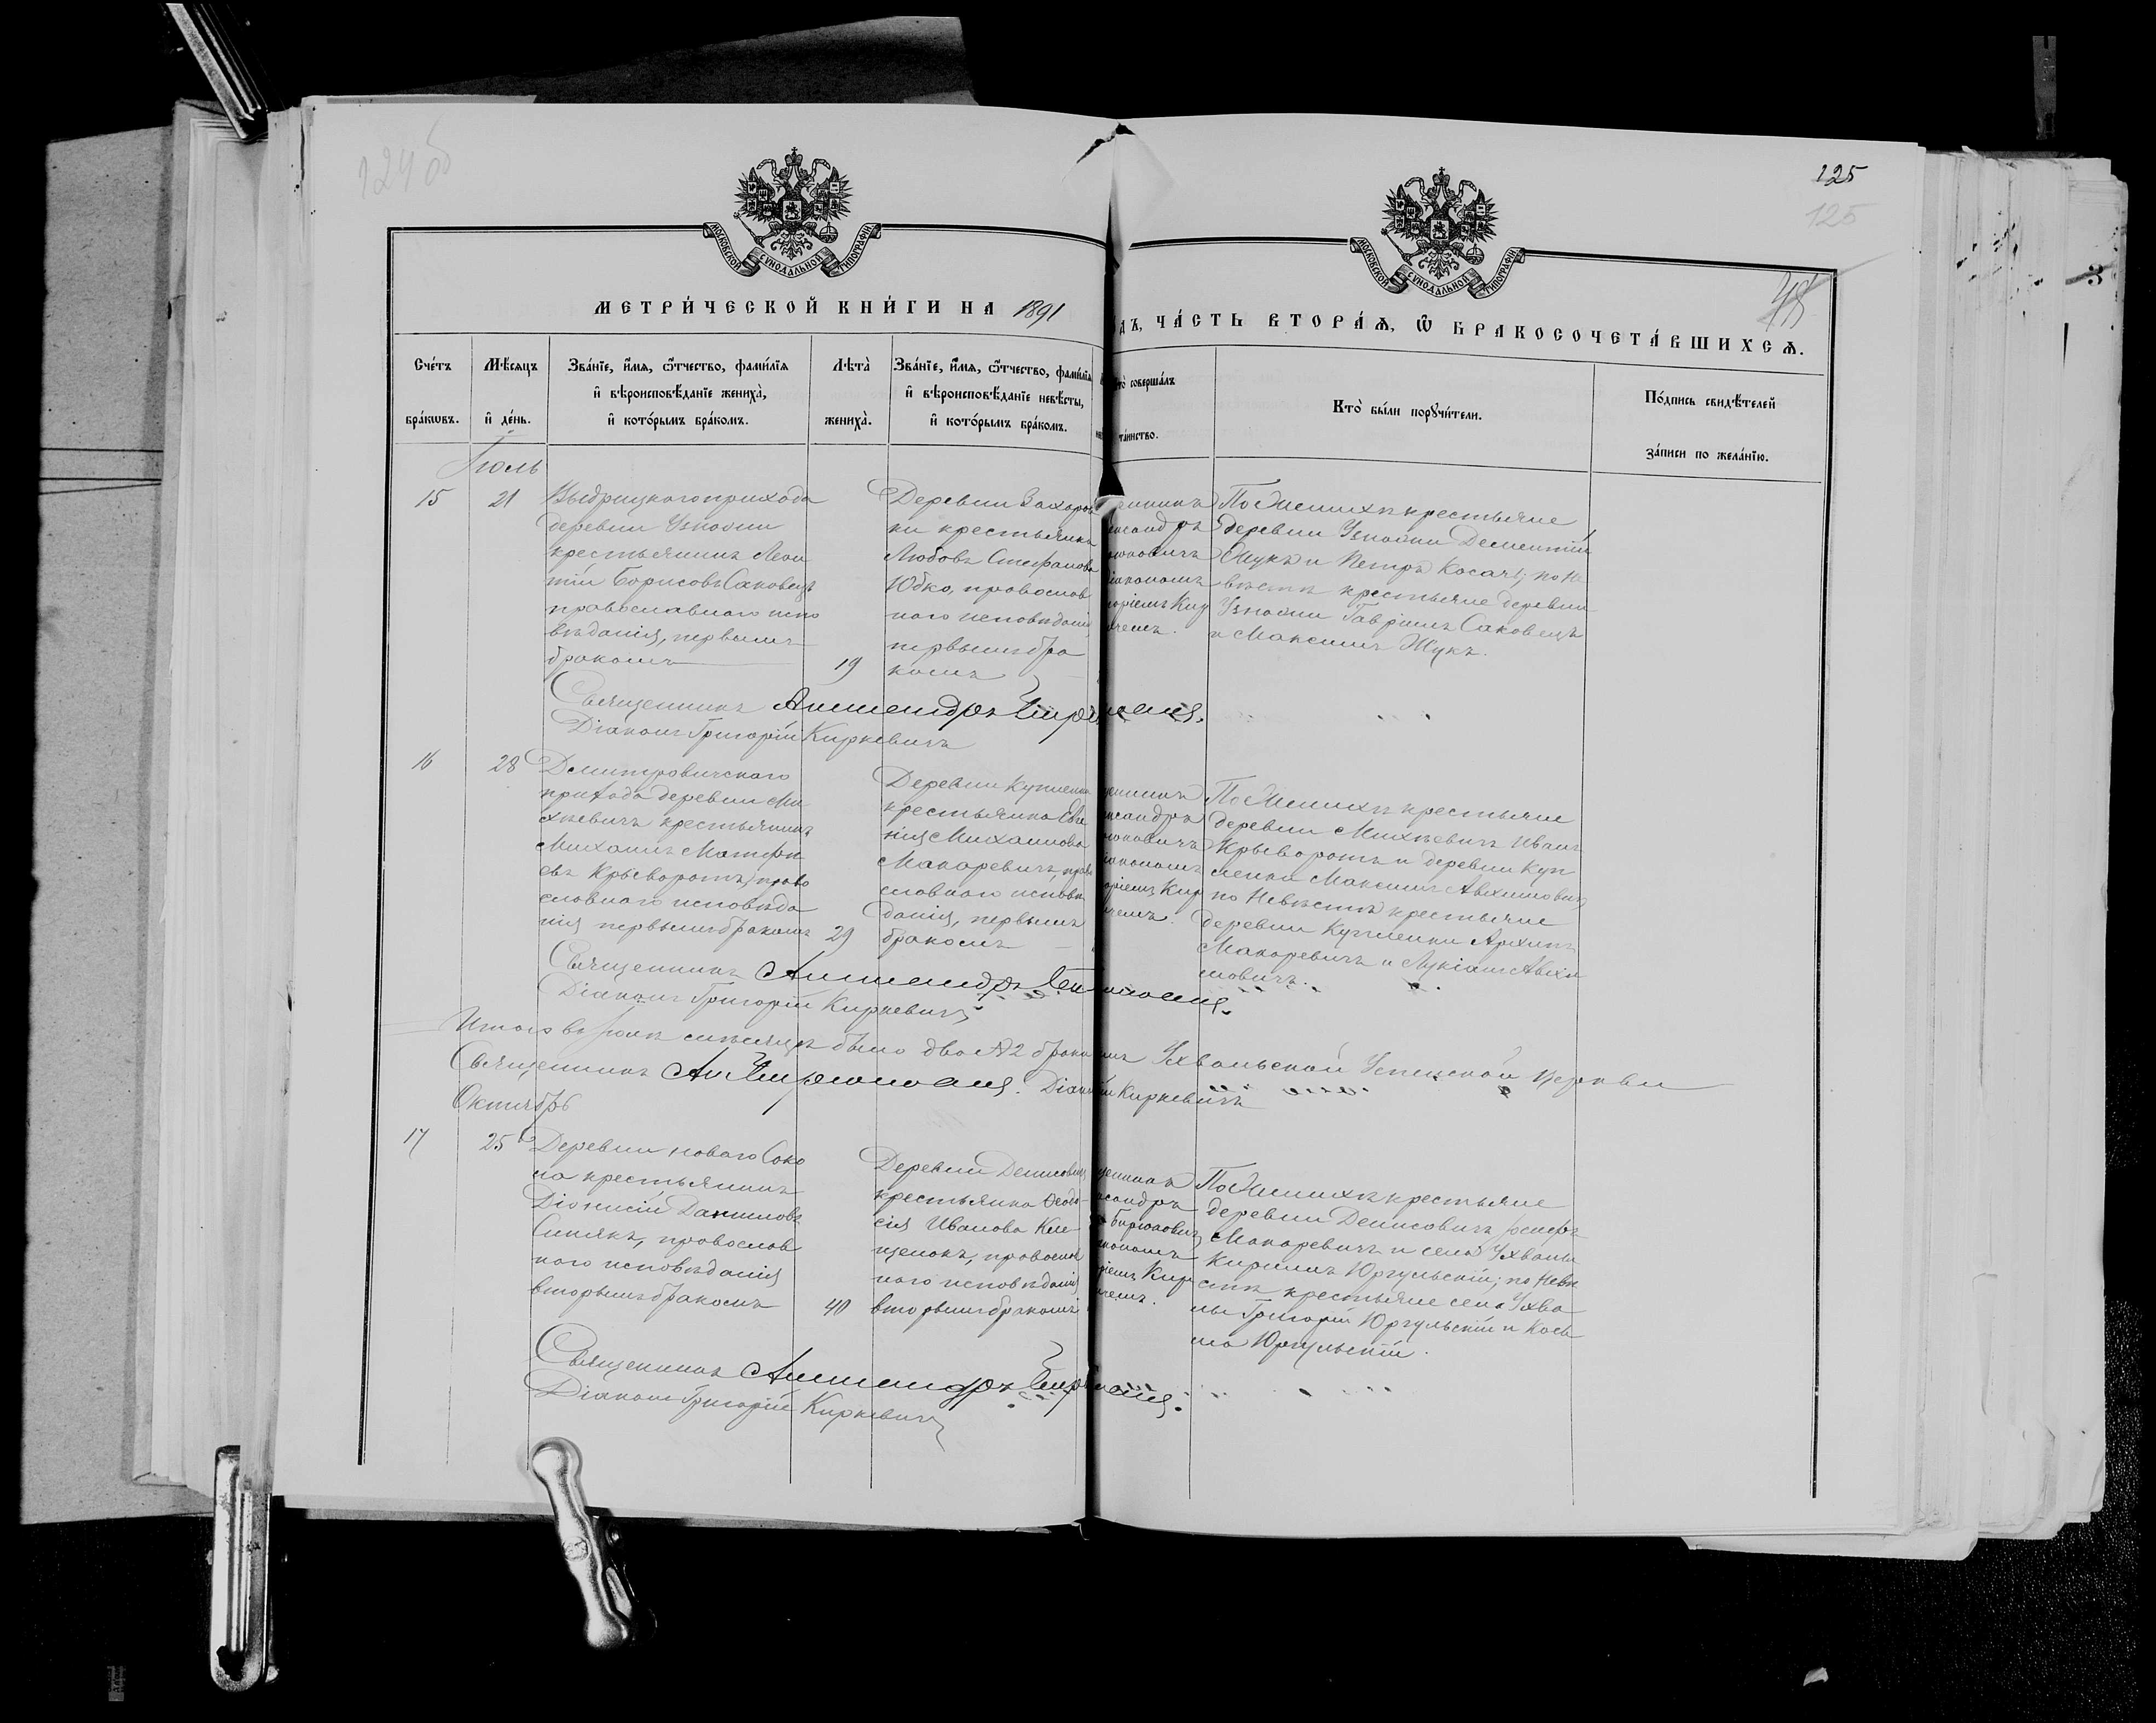 124 об
125
125
МОСКОВСКОЙ СУНОДАЛЬНОЙ ТИПОГРАФІИ
МОСКОВСКОЙ СУНОДАЛЬНОЙ ТИПОГРАФІИ
МЕТРИ́ЧЕСКОЙ КНИ́ГИ НА 1891
ДЪ, ЧА́СТЬ ВТОРА́Ѧ, Ѿ БРАКОСОЧЕТА́ВШИХСѦ.
Сче́тъ бра́кѡвъ.
Мѣ́сяцъ и҆ де́нь.
Зва́нїе, и҆́мѧ, ѻ҆́тчество, фами́лїѧ
и҆ вѣроисповѣ́данїе жениха̀,
и҆ кото́рымъ бра́комъ.
Лѣта̀ жениха̀.
Зва́нїе, и҆́мѧ, ѻ҆́тчество, фами́лїѧ
и҆ вѣроисповѣ́данїе невѣ́сты,
и҆ кото́рымъ бра́комъ.
то̀ соверша́лъ
та́инство.
Кто̀ бы́ли порꙋчи́тели.
По́дпись свидѣ́телей
за́писи по жела́нїю.
Іюль
15
21
Выдрицкаго прихода
деревни Узнажи
крестьянинъ Леон
тій Борисовъ Саковецъ
православнаго испо
вѣданія, первымъ
бракомъ
19
Деревни Захоров
ки крестьянка
Любовь Стефанова
Юдко, православ
наго исповѣданія
первымъ бра
комъ
щенникъ
ександръ
рюковичъ
діакономъ
горіемъ Кир
вичемъ.
По Женихѣ крестьяне
деревни Узнажи Дементій
Жукъ и Петръ Косачъ; по Не
вѣстѣ крестьяне деревни
Узнажи Гавріилъ Саковецъ
и Максимъ Жукъ.
Священникъ Александръ Бирюковичъ.
Діаконъ Григорій Киркевичъ
16
28
Дмитровичскаго
прихода деревни Ми
хѣевичъ крестьянинъ
Михаилъ Матфѣ
евъ Крыворотъ, право
славнаго исповѣда
нія первымъ бракомъ
29
Деревни Купленки
крестьянка Евге
нія Михаилова
Макаревичъ, право
славнаго исповѣ
данія, первымъ
бракомъ
щенникъ
ександръ
рюковичъ
іакономъ
оріемъ Кир
ичемъ.
По Женихѣ крестьяне
деревни Михѣевичъ Иванъ
Крыворотъ и деревни Куп
ленки Максимъ Авхимовичъ
по Невѣстѣ крестьяне
деревни Купленки Архипъ
Макаревичъ и Лукіанъ Авхи
мовичъ.
Священникъ Александръ Бирюковичъ.
Діаконъ Григорій Киркевичъ
Итого въ Іюлѣ мѣсяцѣ было два 2 брака Ухвальской Успенской церкви
Священникъ Ал Бирюковичъ. Діак ій Киркевичъ
Октябрь
17
25
Деревни новаго Соко
ла крестьянинъ
Діонисій Даниловъ
Синякъ, православ
наго исповѣданія
вторымъ бракомъ
40
Деревни Денисовичъ
крестьянка Ѳеодо-
сія Иванова Кле-
щенокъ, православ
наго исповѣданія
вторымъ бракомъ
щенникъ
ксандръ
Бирюковичъ
іакономъ
ріемъ Кир
чемъ.
По Женихѣ крестьяне
деревни Денисовичъ Іосифъ
Макаревичъ и села Ухвалы
Кириллъ Юргульскій; по Невѣ
стѣ крестьяне села Ухва
лы Григорій Юргульскій и Кось
ма Юргульскій.
Священникъ Александръ Бирюковичъ.
Діаконъ Григорій Киркевичъ